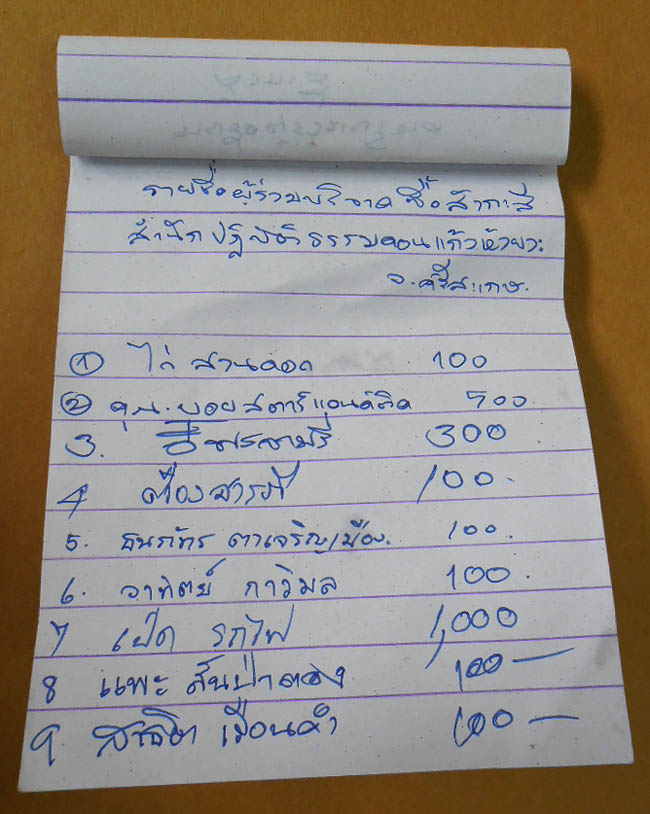 รายชื่อผู้ร่วมบริจาค ซื้อสังกะสี
สำนักปฏิบัติธรรมดอนแก้วห้วยวะ
จ.ศรีสะเกษ.
① ไก่ สานดอด 100
② คุณ.บอย สตาร์แอนด์ติด 500
3. 300
4 ต๋องสารภี 100.
5. ธนภัทร ตาเจริญเมือง. 100.
6. อาทิตย์ กาวิมล 100.
7 เป็ด รถไฟ 1,000
8 แพะ สันป่าตอง 100 —
9. สาธิต เมือนคำ 100 —